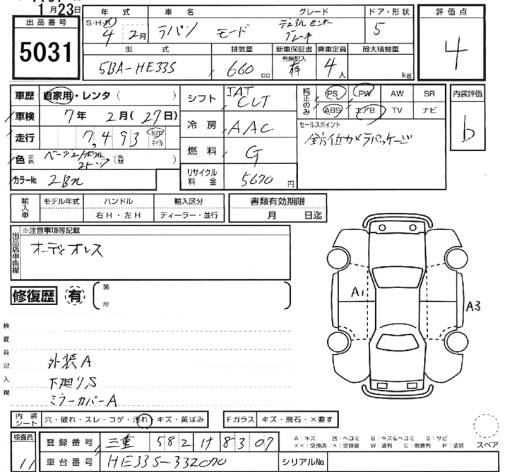 11月23日
出品番号 5031
年式 車名 グレード ドア・形状 評価点
S・H・R 4年 2月 ラパン モード デュアルセンサーブレーキ 5 4
型式 排気量 新車保証書 乗車定員 最大積載量
5BA-HE33S 660cc 有無記入 有 4人 kg
車歴 自家用・レンタ ( )
車検 7年 2月 (27日)
走行 7,493 km マイル
色 ベージュ/ホワイト2トーン (替 )
カラーNo 2BH
シフト IAT CVT
冷房 AAC
燃料 G
リサイクル料金 5670
純正のみ PS PW AW SR
ABS エアB TV ナビ
セールスポイント
全方位カメラパッケージ
内装評価 b
輸入車 モデル年式 ハンドル 輸入区分 書類有効期限
右H・左H ディーラー・並行 月 日迄
出品店申告欄 ※注意事項等記載
オーディオレス
修復歴 有 (箇所 )
検査員記入欄
外装A
下廻りS
ミラーカバーA
A1 A3
内装シート 穴・破れ・スレ・コゲ・汚れ・キズ・黄ばみ Fガラス キズ・飛石・×要す
スペア
検査員 11
登録番号 三重 582 け 8307
A キズ U ヘコミ B キズ&ヘコミ S サビ
××:交換済 ×:要交換 W 波有 C 腐食有 P 塗装
車台番号 HE33S-332070 シリアルNo